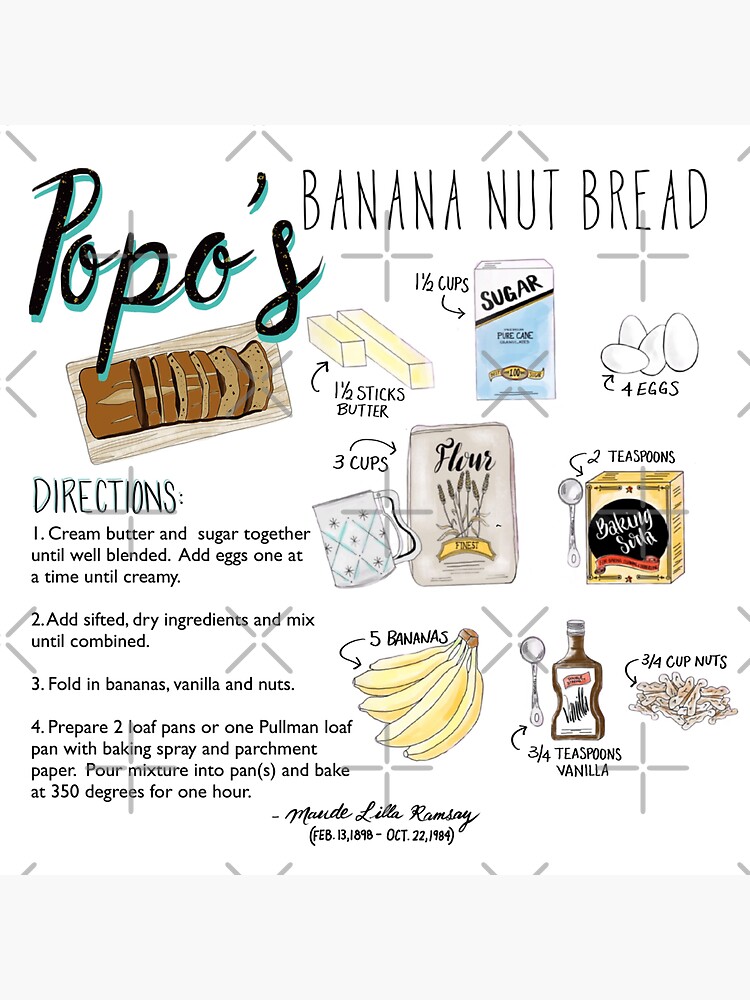 Popo's
BANANA NUT BREAD
1½ CUPS
SUGAR
PURE CANE
1½ STICKS
BUTTER
4 EGGS
3 CUPS
Flour
FINEST
2 TEASPOONS
Baking
Soda
DIRECTIONS:
1. Cream butter and sugar together
until well blended. Add eggs one at
a time until creamy.
2. Add sifted, dry ingredients and mix
until combined.
3. Fold in bananas, vanilla and nuts.
4. Prepare 2 loaf pans or one Pullman loaf
pan with baking spray and parchment
paper. Pour mixture into pan(s) and bake
at 350 degrees for one hour.
5 BANANAS
Vanilla
3/4 TEASPOONS
VANILLA
3/4 CUP NUTS
- Maude Lilla Ramsay
(FEB. 13, 1898 - OCT. 22, 1984)